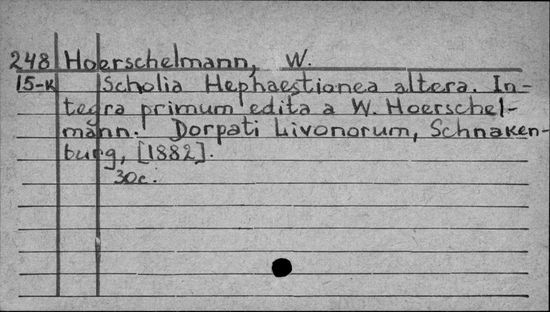 248 Hoerschelmann, W.
15-к Scholia Hephaestionea altera. In-
tegra primum edita a W. Hoerschel-
mann. Dorpati Livonorum, Schnaken-
burg, [1882].
30c.